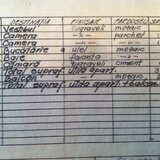 DESTINATIA FINISAJE PARDOSELI
Vestibul zugraveli mozaic
Camera -"- parchet
Camera -"- -"-
Bucatarie ulei mozaic
Baie faianta -"-
Camara zugraveli ciment
Total supraf. utila apart.
Balcon mozaic
Total supraf. utila apart.+balcon